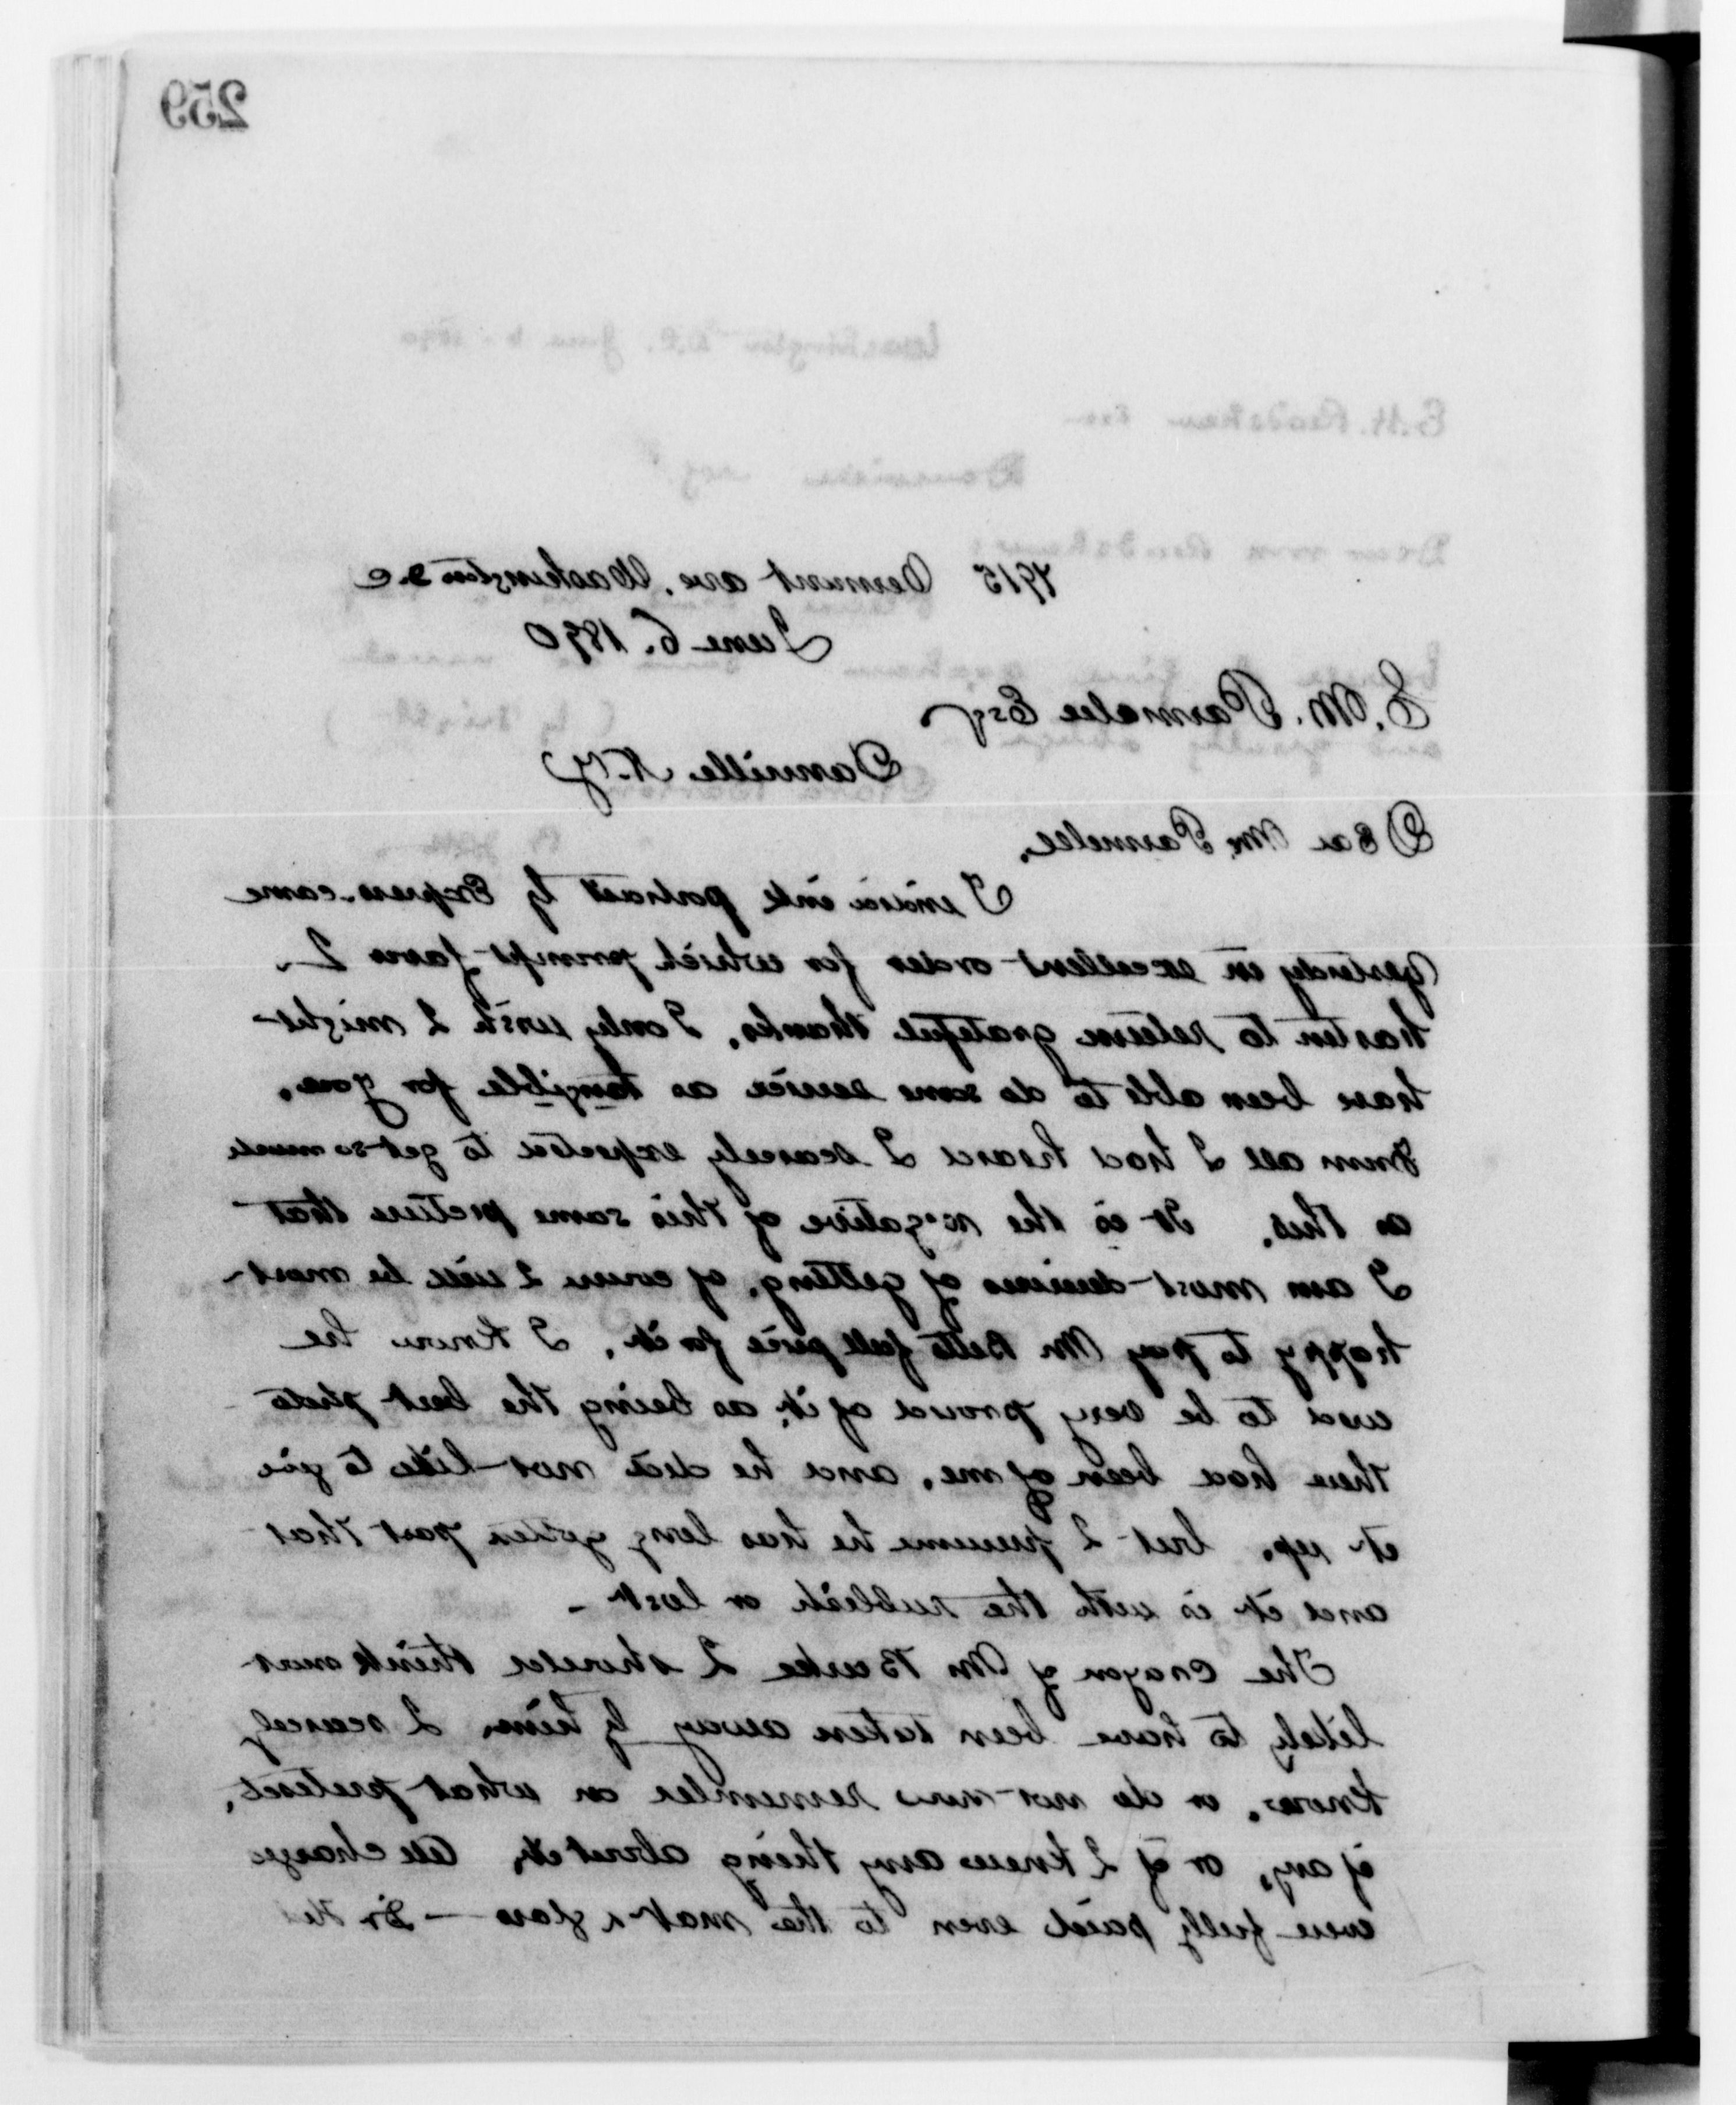 259
Washington D.C. June 6. 1890
1915 Vermont ave. Washington D.C
June 6. 1890
E. M. Parmelee Esq
Dansville N.Y
Dear Mr. Parmelee,
India ink portrait by Express. came
yesterday in excellent order for which prompt favor I
hasten to return grateful thanks. I only wish I might
have been able to do some service as tangible for you.
From all I had heard I scarcely expected to get so much
as this. It is the negative of this same picture that
I am most desirous of getting, of course I will be most
happy to pay Mr Betts full price for it. I know he
used to be very proud of it, as being the best photo
there had been of me. and he did not like to give
it up. but I presume he has long gotten past that
and it is with the rubbish or lost -
The crayon of Mr Burke I should think most
likely to have been taken away by him. I scarcely
know. or do not now remember on what pretext,
if any, or if I knew any thing about it. All charges
were fully paid even to the mat & glass — Dr